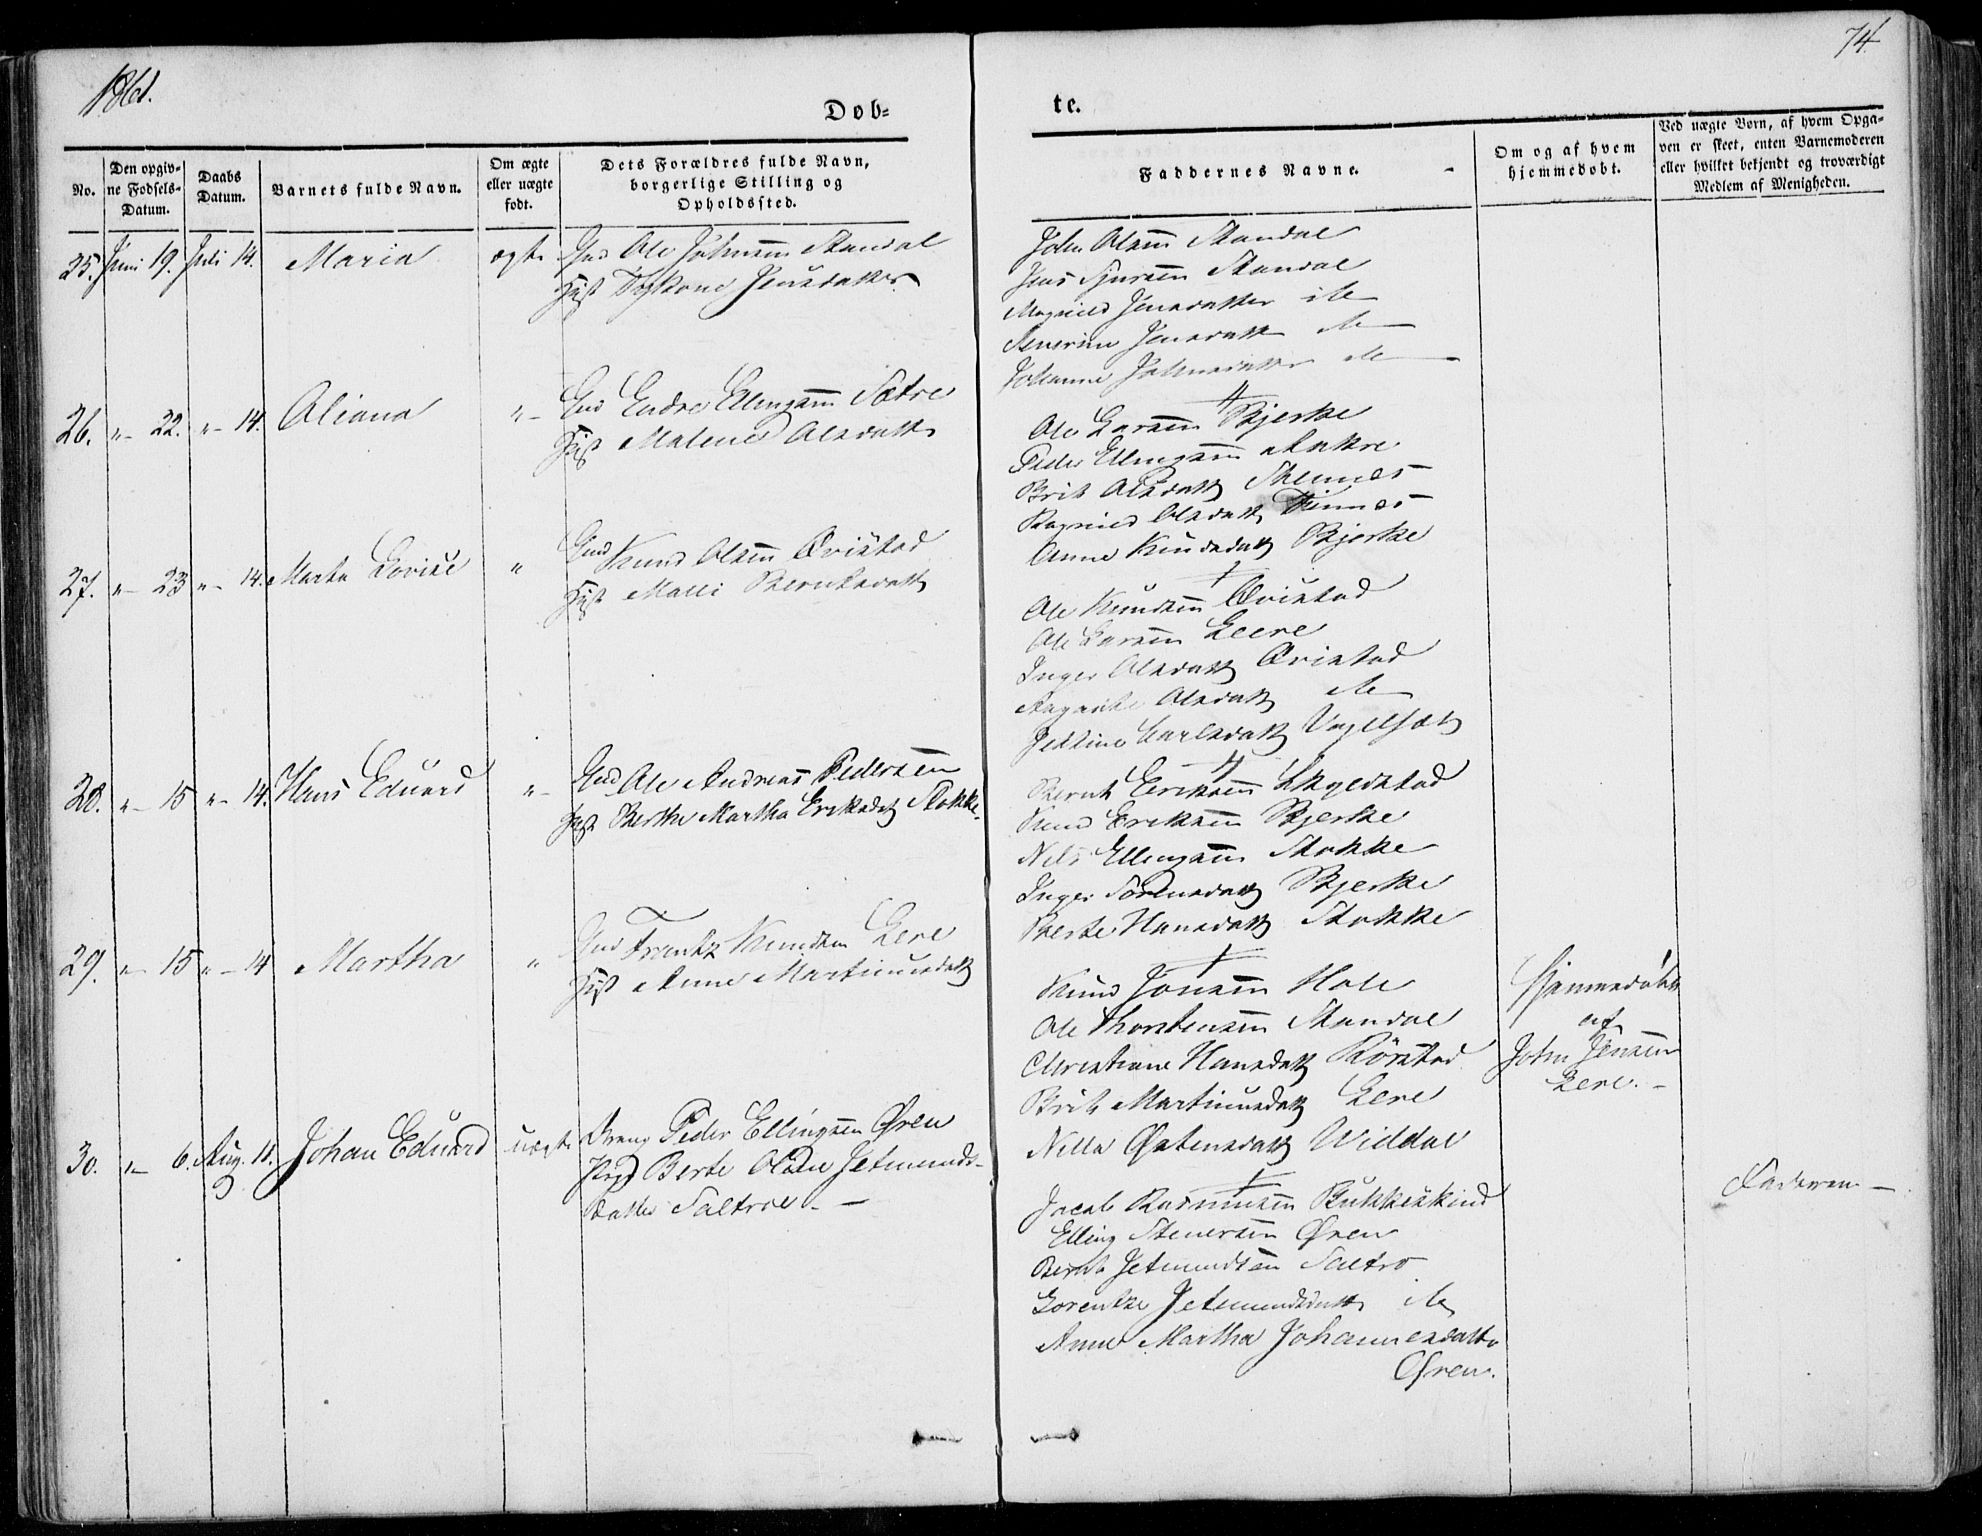 1861.
74
Døb-
te.
No.
Den opgiv-
ne Fødsels-
Datum.
Daabs
Datum.
Barnets fulde Navn.
Om ægte
eller uægte
født.
Dets Forældres fulde Navn,
borgerlige Stilling og
Opholdssted.
Faddernes Navne.
Om og af hvem
hjemmedøbt.
Ved uægte Børn, af hvem Opga-
ven er skeet, enten Barnemoderen
eller hvilket bekjendt og troværdigt
Medlem af Menigheden.
25. Juni 19. Juli 14. Maria ægte Gmd Ole Johnsen Standal
Hust Jensdatter
John Olsen Standal
Jens Sjursen Standal
Magnild Jensdatter
Severine Jensdatt
Johanne Johnsdatter
26. " 22. " 14. Oliana " Gmd Endre Ellingsen Sætre
Hust Malene Olsdatt
Ole Larsen Bjerke
Peder Ellingsen Aakre
Brit Olsdatt Stennes
Ragnild Olsdatt
Anne Knudsdatt Bjerke
27. " 23 " 14. Marta Lovise " Gmd Knud Olsen Qvistad
Hust Malli Berntsdatt
Ole Knudsen Qvistad
Ole Larsen Leere
Inger Olsdatt Qvistad
Olsdatt
Carlsdatt
28. " 15 " 14. Hans Eduard " Gmd Ole Andreas Pedersen
Hust Berthe Martha Eriksdatt Stokke.
Bernt Eriksen
Knud Eriksen Bjerke
Nils Ellingsen Stokke
Inger Sørensdatt Bjerke
Berte Hansdatt Stokke
29. " 15 " 14 Martha " Gmd Frantz Knudsen Lere
Hust Anne Martinusdatt
Knud Jonsen Hole
Ole Thorstensen Standal
Christiane Hansdatt Rørstad
Brit Martinusdatt Lere
Nille Østensdatt Widdal
Hjemmedøbt
af
John Jensen
Lere.
30. " 6. Aug. 11. Johan Eduard uægte Dreng Peder Ellingsen Øren
Pige Berte Oline Jetmunds-
datter Saltroe
Jacob Rasmusen Bukkeskind
Elling Steversen Øren
Bernt Jetmundsen Saltro
Lorentze Jetmundsdatt
Anne Martha Johannesdatter
Øren.
Faderen